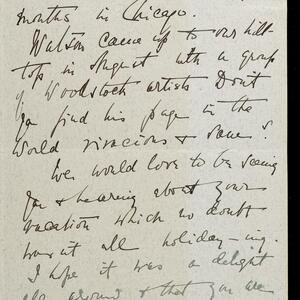 months in Chicago.
Watson came up to our hill-
top in August with a group
of Woodstock artists Don't
you find his page in the
World vivacious & sane?
We would love to be seeing
you & hearing about your
vacation which no doubt
wasn't all holiday-ing.
I hope it was a delight
all around & that you are